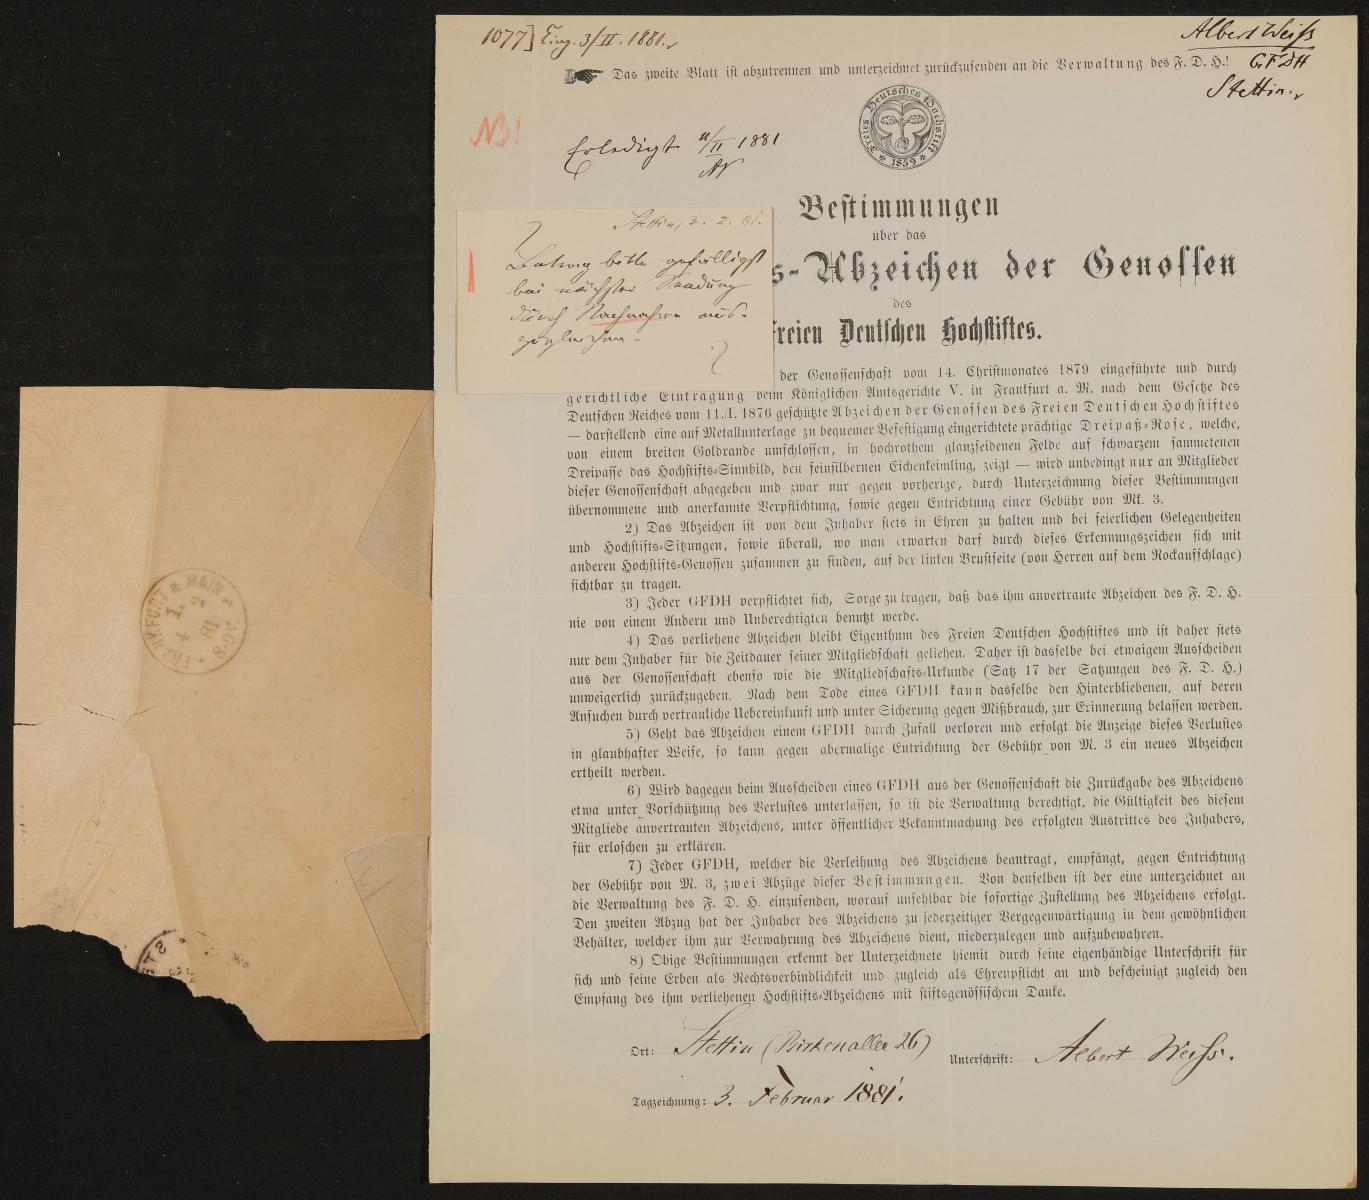 1077] Eing. 3/II. 1881.
Albert Weiss
GFDH
Stettin.
Das zweite Blatt ist abzutrennen und unterzeichnet zurückzusenden an die Verwaltung des F. D. H.!
Freies Deutsches Hochstift
* 1859 *
NB!
Erledigt 11/II 1881
Bestimmungen
über das
s-Abzeichen der Genossen
des
Freien Deutschen Hochstiftes.
Stettin, 3. 2. 81.
Betrag bitte gefälligst
bei nächster Sendung
durch Nachnahme aus-
zugleichen.
der Genossenschaft vom 14. Christmonates 1879 eingeführte und durch
gerichtliche Eintragung beim Königlichen Amtsgerichte V. in Frankfurt a. M. nach dem Gesetze des
Deutschen Reiches vom 11./I. 1876 geschützte Abzeichen der Genossen des Freien Deutschen Hochstiftes
— darstellend eine auf Metallunterlage zu bequemer Befestigung eingerichtete prächtige Dreipaß-Rose, welche,
von einem breiten Goldrande umschlossen, in hochrothem glanzseidenen Felde auf schwarzem sammetenen
Dreipasse das Hochstifts-Sinnbild, den feinsilbernen Eichenkeimling, zeigt — wird unbedingt nur an Mitglieder
dieser Genossenschaft abgegeben und zwar nur gegen vorherige, durch Unterzeichnung dieser Bestimmungen
übernommene und anerkannte Verpflichtung, sowie gegen Entrichtung einer Gebühr von Mk. 3.
2) Das Abzeichen ist von dem Inhaber stets in Ehren zu halten und bei feierlichen Gelegenheiten
und Hochstifts-Sitzungen, sowie überall, wo man erwarten darf durch dieses Erkennungszeichen sich mit
anderen Hochstifts-Genossen zusammen zu finden, auf der linken Brustseite (von Herren auf dem Rockaufschlage)
sichtbar zu tragen.
3) Jeder GFDH verpflichtet sich, Sorge zu tragen, daß das ihm anvertraute Abzeichen des F. D. H.
nie von einem Andern und Unberechtigten benutzt werde.
4) Das verliehene Abzeichen bleibt Eigenthum des Freien Deutschen Hochstiftes und ist daher stets
nur dem Inhaber für die Zeitdauer seiner Mitgliedschaft geliehen. Daher ist dasselbe bei etwaigem Ausscheiden
aus der Genossenschaft ebenso wie die Mitgliedschafts-Urkunde (Satz 17 der Satzungen des F. D. H.)
unweigerlich zurückzugeben. Nach dem Tode eines GFDH kann dasselbe den Hinterbliebenen, auf deren
Ansuchen durch vertrauliche Uebereinkunft und unter Sicherung gegen Mißbrauch, zur Erinnerung belassen werden.
5) Geht das Abzeichen einem GFDH durch Zufall verloren und erfolgt die Anzeige dieses Verlustes
in glaubhafter Weise, so kann gegen abermalige Entrichtung der Gebühr von M. 3 ein neues Abzeichen
ertheilt werden.
6) Wird dagegen beim Ausscheiden eines GFDH aus der Genossenschaft die Zurückgabe des Abzeichens
etwa unter Vorschützung des Verlustes unterlassen, so ist die Verwaltung berechtigt, die Gültigkeit des diesem
Mitgliede anvertrauten Abzeichens, unter öffentlicher Bekanntmachung des erfolgten Austrittes des Inhabers,
für erloschen zu erklären.
7) Jeder GFDH, welcher die Verleihung des Abzeichens beantragt, empfängt, gegen Entrichtung
der Gebühr von M. 3, zwei Abzüge dieser Bestimmungen. Von denselben ist der eine unterzeichnet an
die Verwaltung des F. D. H. einzusenden, worauf unfehlbar die sofortige Zustellung des Abzeichens erfolgt.
Den zweiten Abzug hat der Inhaber des Abzeichens zu jederzeitiger Vergegenwärtigung in dem gewöhnlichen
Behälter, welcher ihm zur Verwahrung des Abzeichens dient, niederzulegen und aufzubewahren.
8) Obige Bestimmungen erkennt der Unterzeichnete hiemit durch seine eigenhändige Unterschrift für
sich und seine Erben als Rechtsverbindlichkeit und zugleich als Ehrenpflicht an und bescheinigt zugleich den
Empfang des ihm verliehenen Hochstifts-Abzeichens mit stiftsgenössischem Danke.
Ort: Stettin (Birkenallee 26) Unterschrift: Albert Weiss.
Tagzeichnung: 3. Februar 1881.
FRANKFURT a MAIN
4 2
81